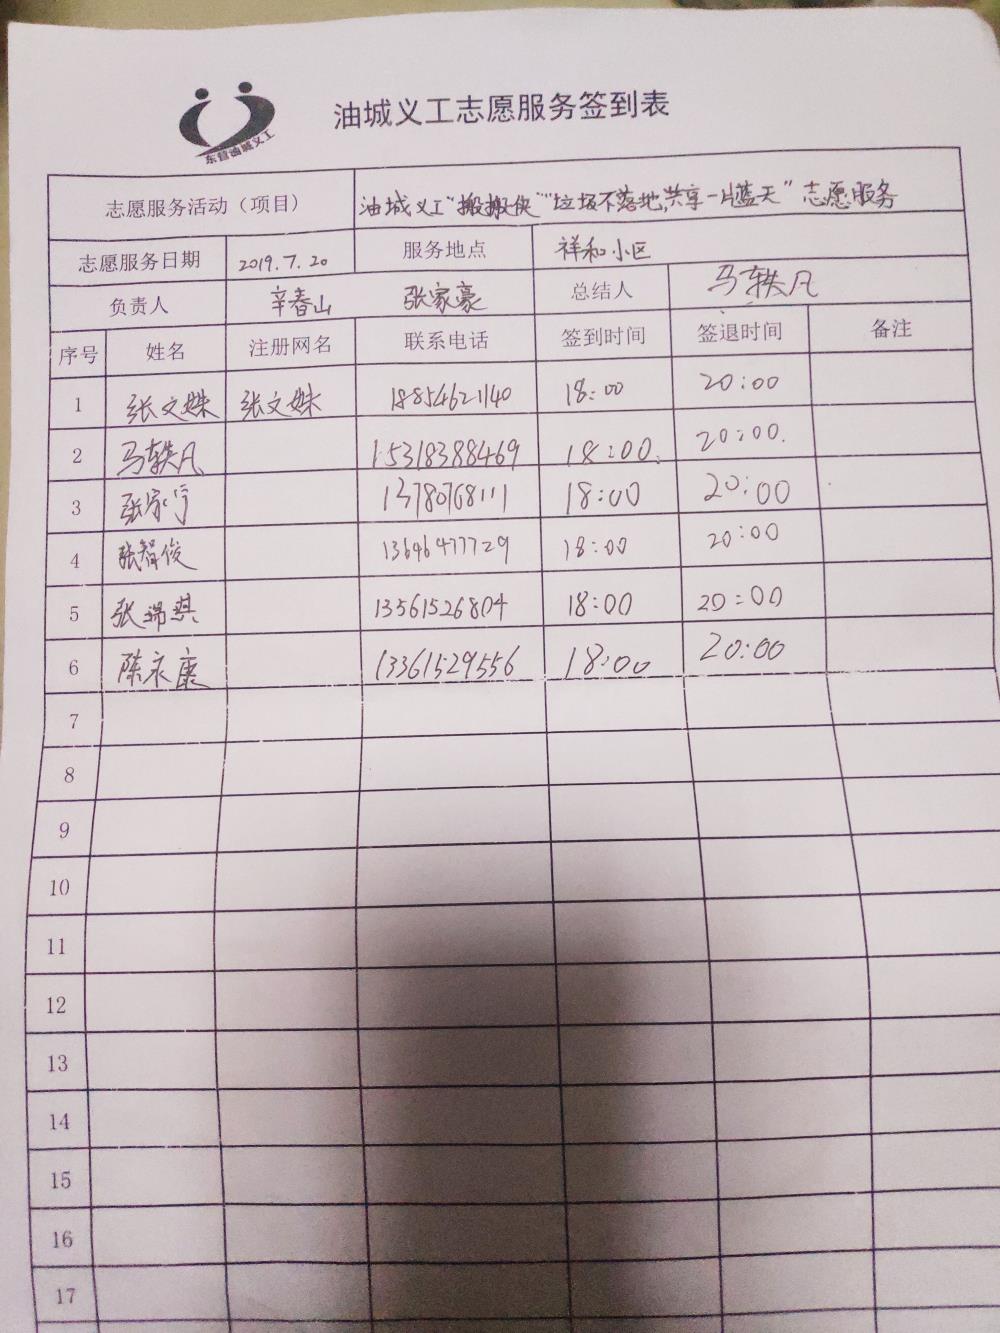 东营油城义工
油城义工志愿服务签到表
志愿服务活动（项目） 油城义工“搬搬侠”“垃圾不落地,共享一片蓝天”志愿服务
志愿服务日期 2019.7.20 服务地点 祥和小区
负责人 辛春山 张家豪 总结人 马轶凡
序号 姓名 注册网名 联系电话 签到时间 签退时间 备注
1 张文姝 张文姝 18854621140 18:00 20:00
2 马轶凡 15318388469 18:00 20:00
3 张家宁 13780768111 18:00 20:00
4 张智俊 13646477729 18:00 20:00
5 张瑞琪 13561526804 18:00 20:00
6 陈衣康 13361529556 18:00 20:00
7
8
9
10
11
12
13
14
15
16
17